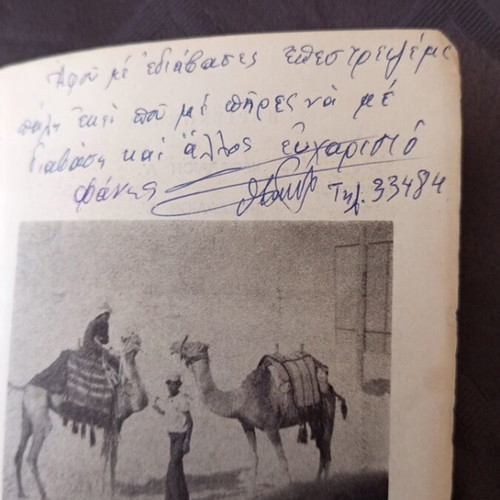 Ἀφοῦ μέ ἐδιάβασες ἐπέστρεψέ με
πάλι ἐκεῖ ποῦ μέ πῆρες νά μέ
διαβάση καί ἄλλος εὐχαριστῶ
φάνης Τηλ. 33484